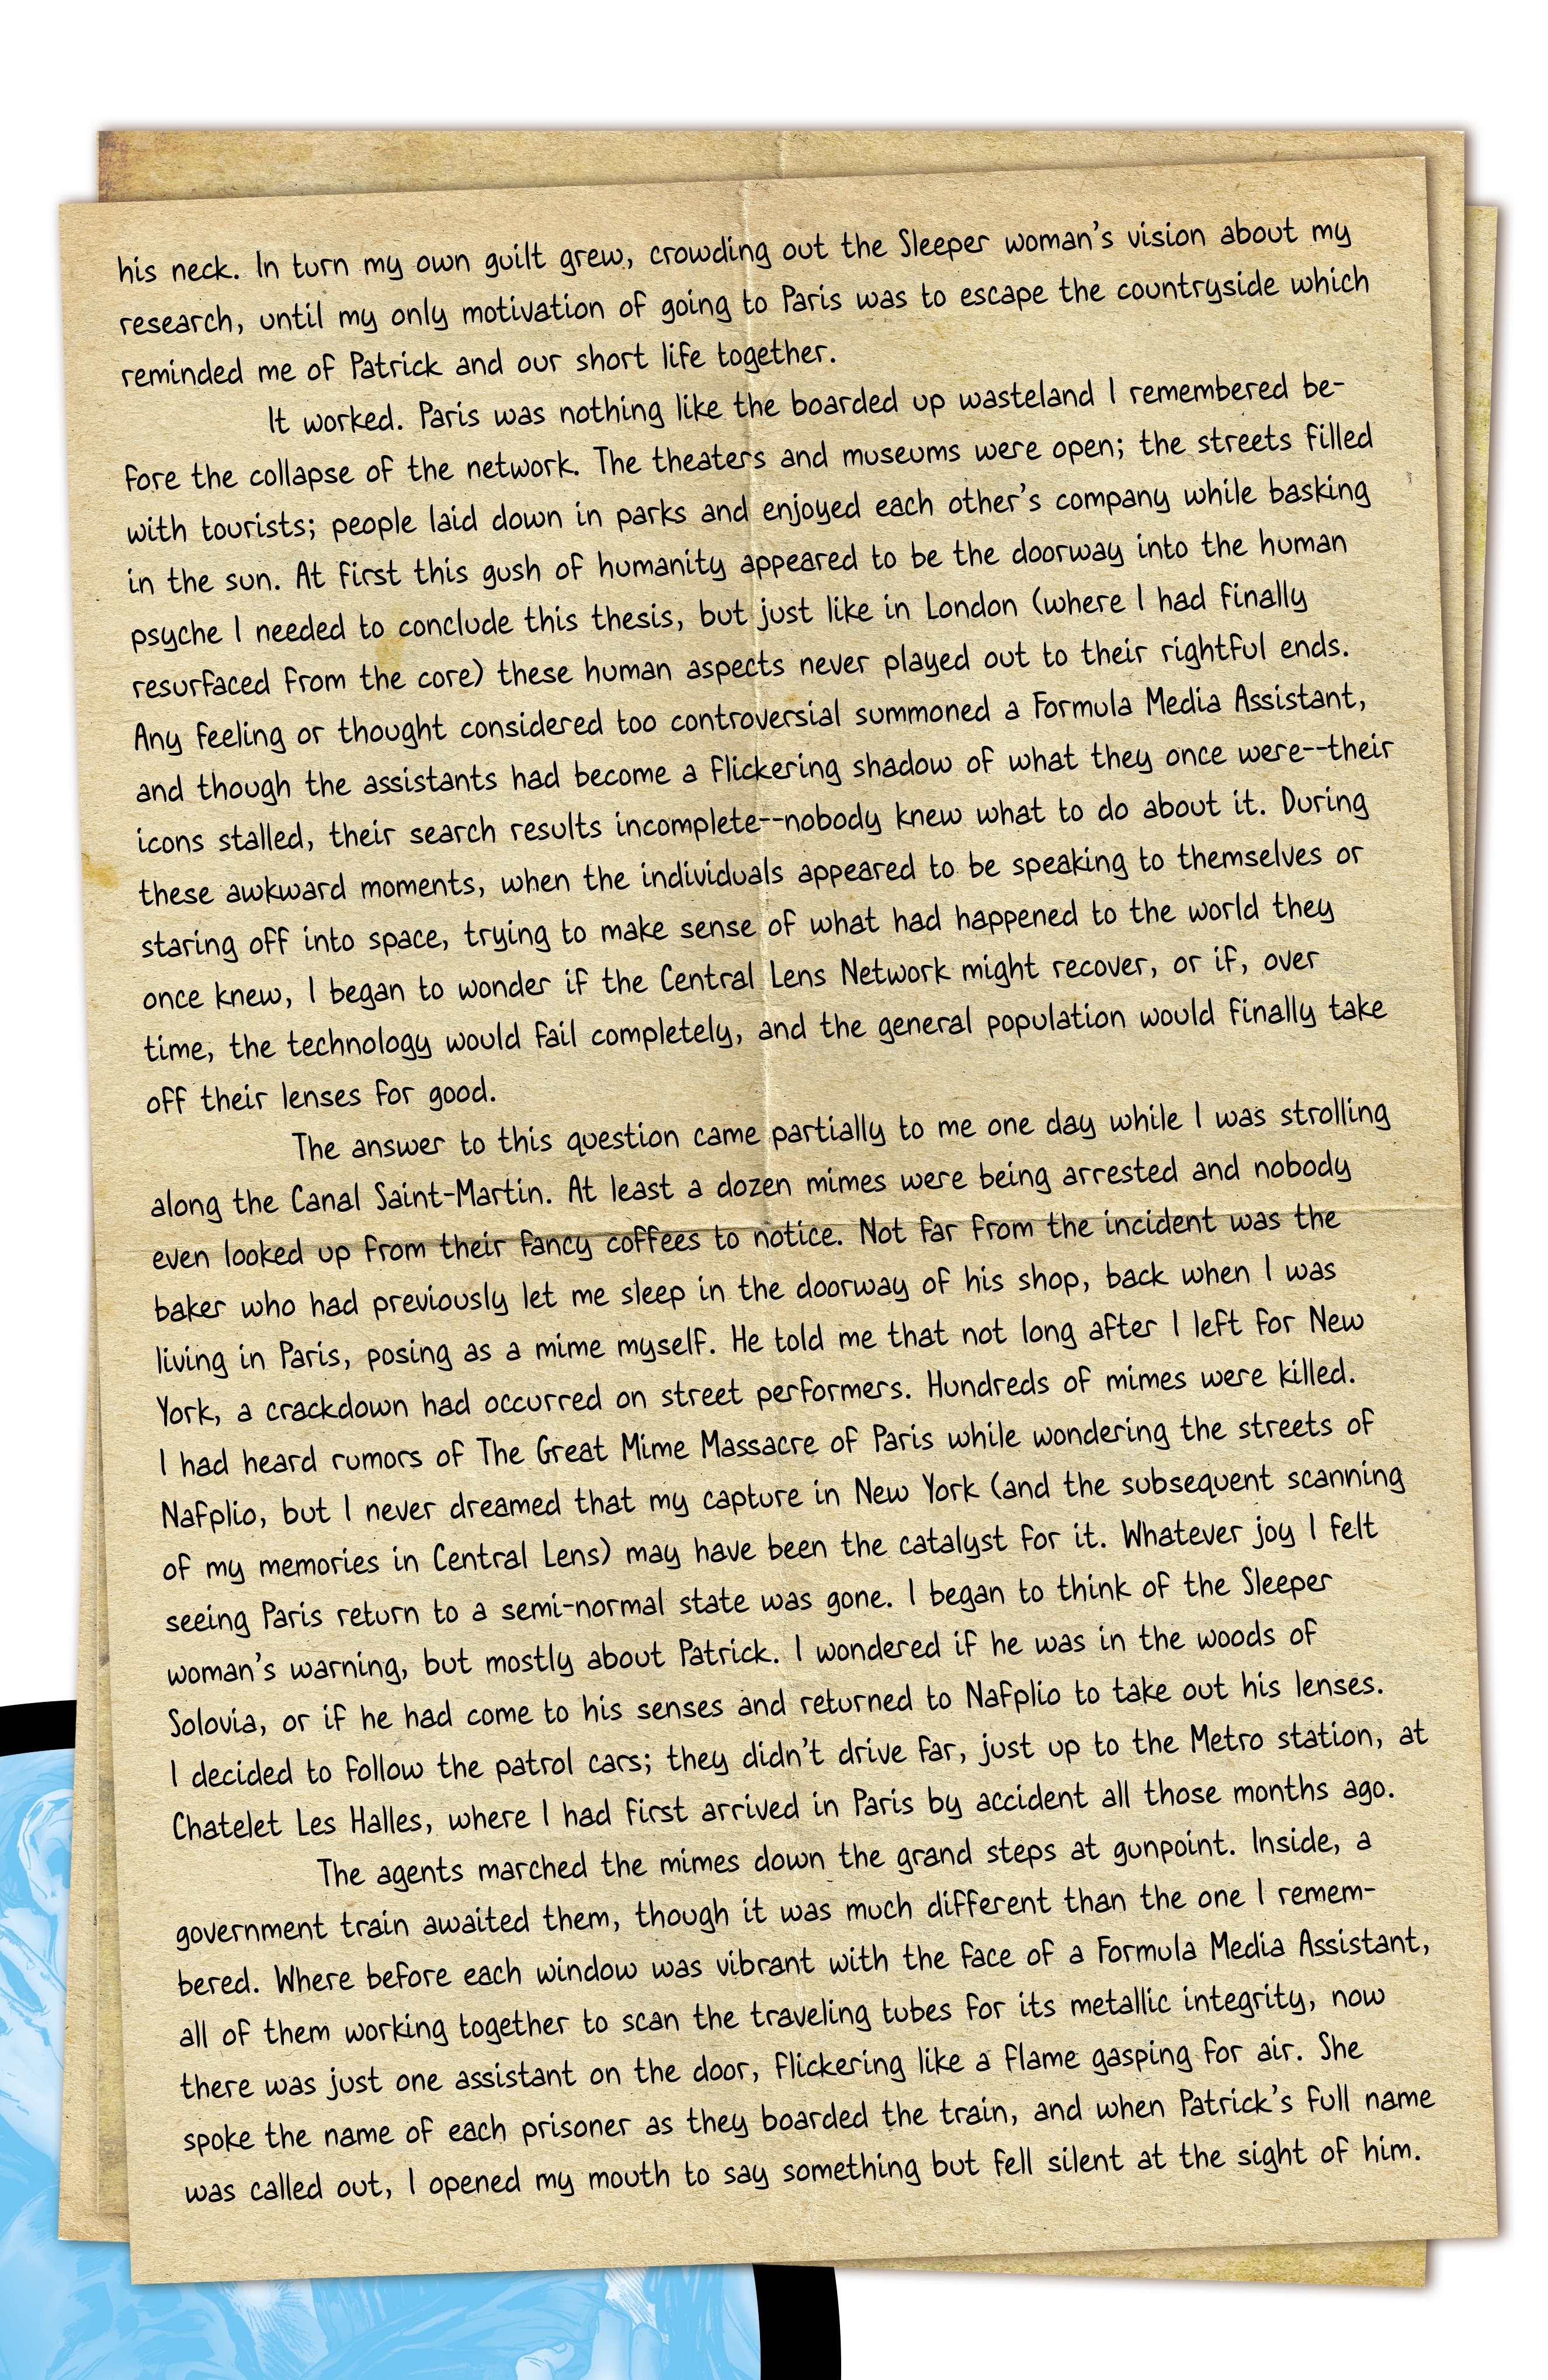 his neck. In turn my own guilt grew, crowding out the Sleeper woman's vision about my
research, until my only motivation of going to Paris was to escape the countryside which
reminded me of Patrick and our short life together.
It worked. Paris was nothing like the boarded up wasteland I remembered be-
fore the collapse of the network. The theaters and museums were open; the streets filled
with tourists; people laid down in parks and enjoyed each other's company while basking
in the sun. At first this gush of humanity appeared to be the doorway into the human
psyche I needed to conclude this thesis, but just like in London (where I had finally
resurfaced from the core) these human aspects never played out to their rightful ends.
Any feeling or thought considered too controversial summoned a Formula Media Assistant,
and though the assistants had become a flickering shadow of what they once were--their
icons stalled, their search results incomplete--nobody knew what to do about it. During
these awkward moments, when the individuals appeared to be speaking to themselves or
staring off into space, trying to make sense of what had happened to the world they
once knew, I began to wonder if the Central Lens Network might recover, or if, over
time, the technology would fail completely, and the general population would finally take
off their lenses for good.
The answer to this question came partially to me one day while I was strolling
along the Canal Saint-Martin. At least a dozen mimes were being arrested and nobody
even looked up from their fancy coffees to notice. Not far from the incident was the
baker who had previously let me sleep in the doorway of his shop, back when I was
living in Paris, posing as a mime myself. He told me that not long after I left for New
York, a crackdown had occurred on street performers. Hundreds of mimes were killed.
I had heard rumors of The Great Mime Massacre of Paris while wondering the streets of
Nafplio, but I never dreamed that my capture in New York (and the subsequent scanning
of my memories in Central Lens) may have been the catalyst for it. Whatever joy I felt
seeing Paris return to a semi-normal state was gone. I began to think of the Sleeper
woman's warning, but mostly about Patrick. I wondered if he was in the woods of
Solovia, or if he had come to his senses and returned to Nafplio to take out his lenses.
I decided to follow the patrol cars; they didn't drive far, just up to the Metro station, at
Chatelet Les Halles, where I had first arrived in Paris by accident all those months ago.
The agents marched the mimes down the grand steps at gunpoint. Inside, a
government train awaited them, though it was much different than the one I remem-
bered. Where before each window was vibrant with the face of a Formula Media Assistant,
all of them working together to scan the traveling tubes for its metallic integrity, now
there was just one assistant on the door, flickering like a flame gasping for air. She
spoke the name of each prisoner as they boarded the train, and when Patrick's full name
was called out, I opened my mouth to say something but fell silent at the sight of him.